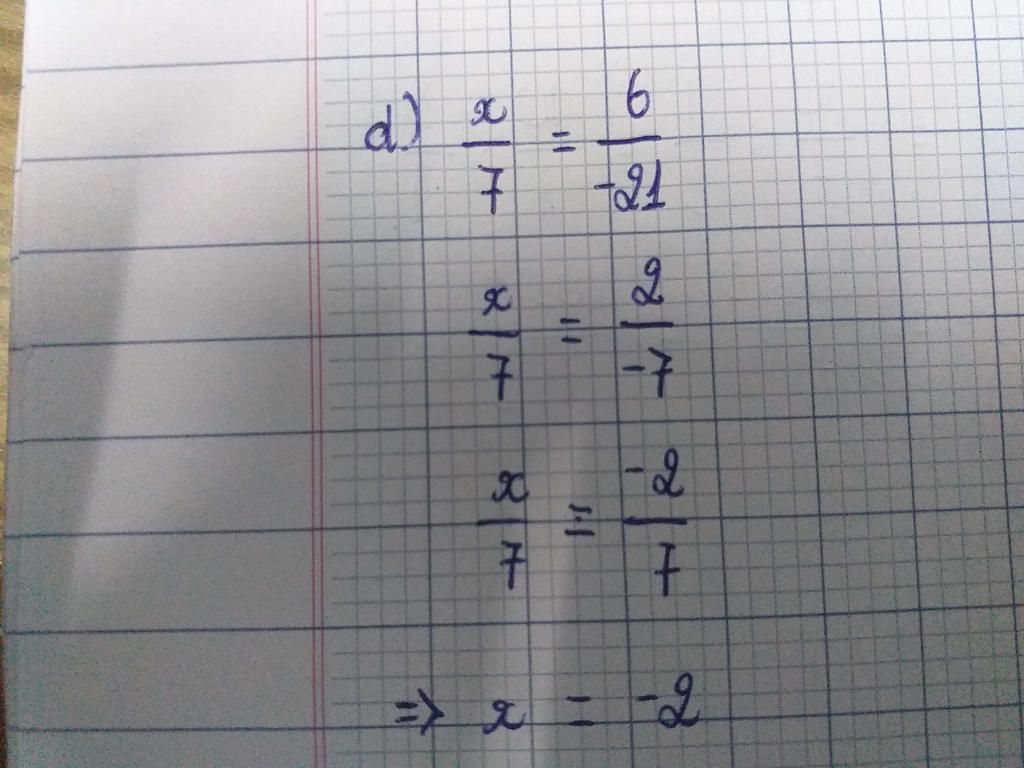 d.) x/7 = 6/-21
x/7 = 2/-7
x/7 = -2/7
=> x = -2